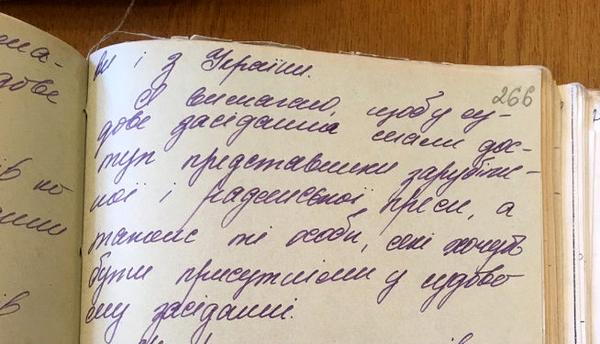 ма-
дове
266
ви і з України.
Я вимагаю, щоб у су-
дове засідання мали дос-
туп представники зарубіж-
ної і радянської преси, а
також ті особи, які хочуть
бути присутніми у судово
му засіданні.